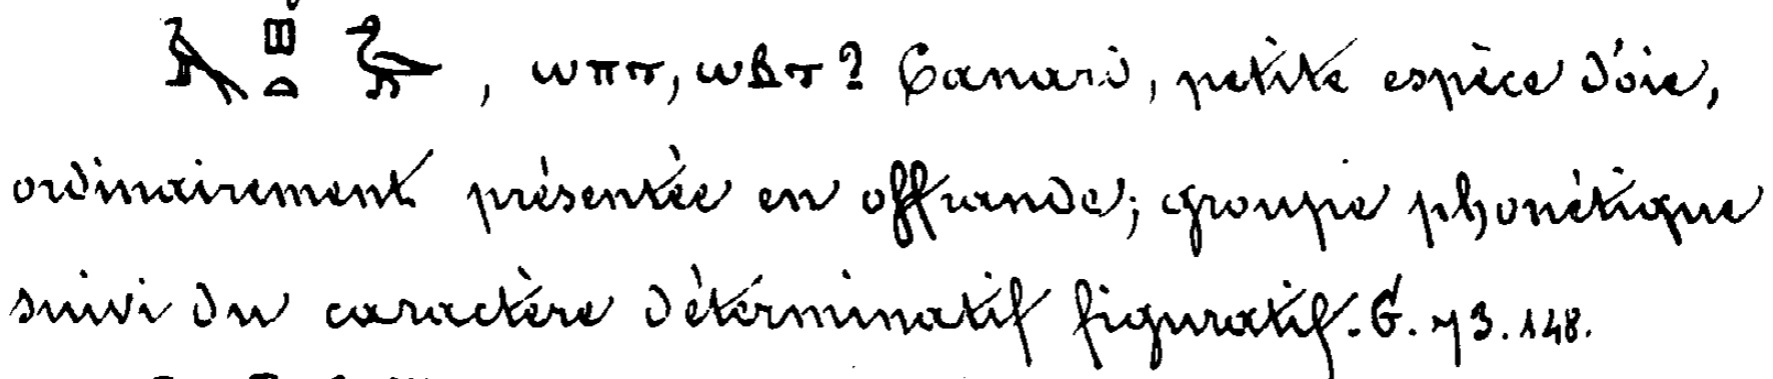 𓄿𓊪𓏏𓅭, ⲱⲡⲧ, ⲱⲃⲧ? Canard, petite espèce d'oie,
ordinairement présentée en offrande; groupe phonétique
suivi du caractère déterminatif figuratif. G. 73. 148.